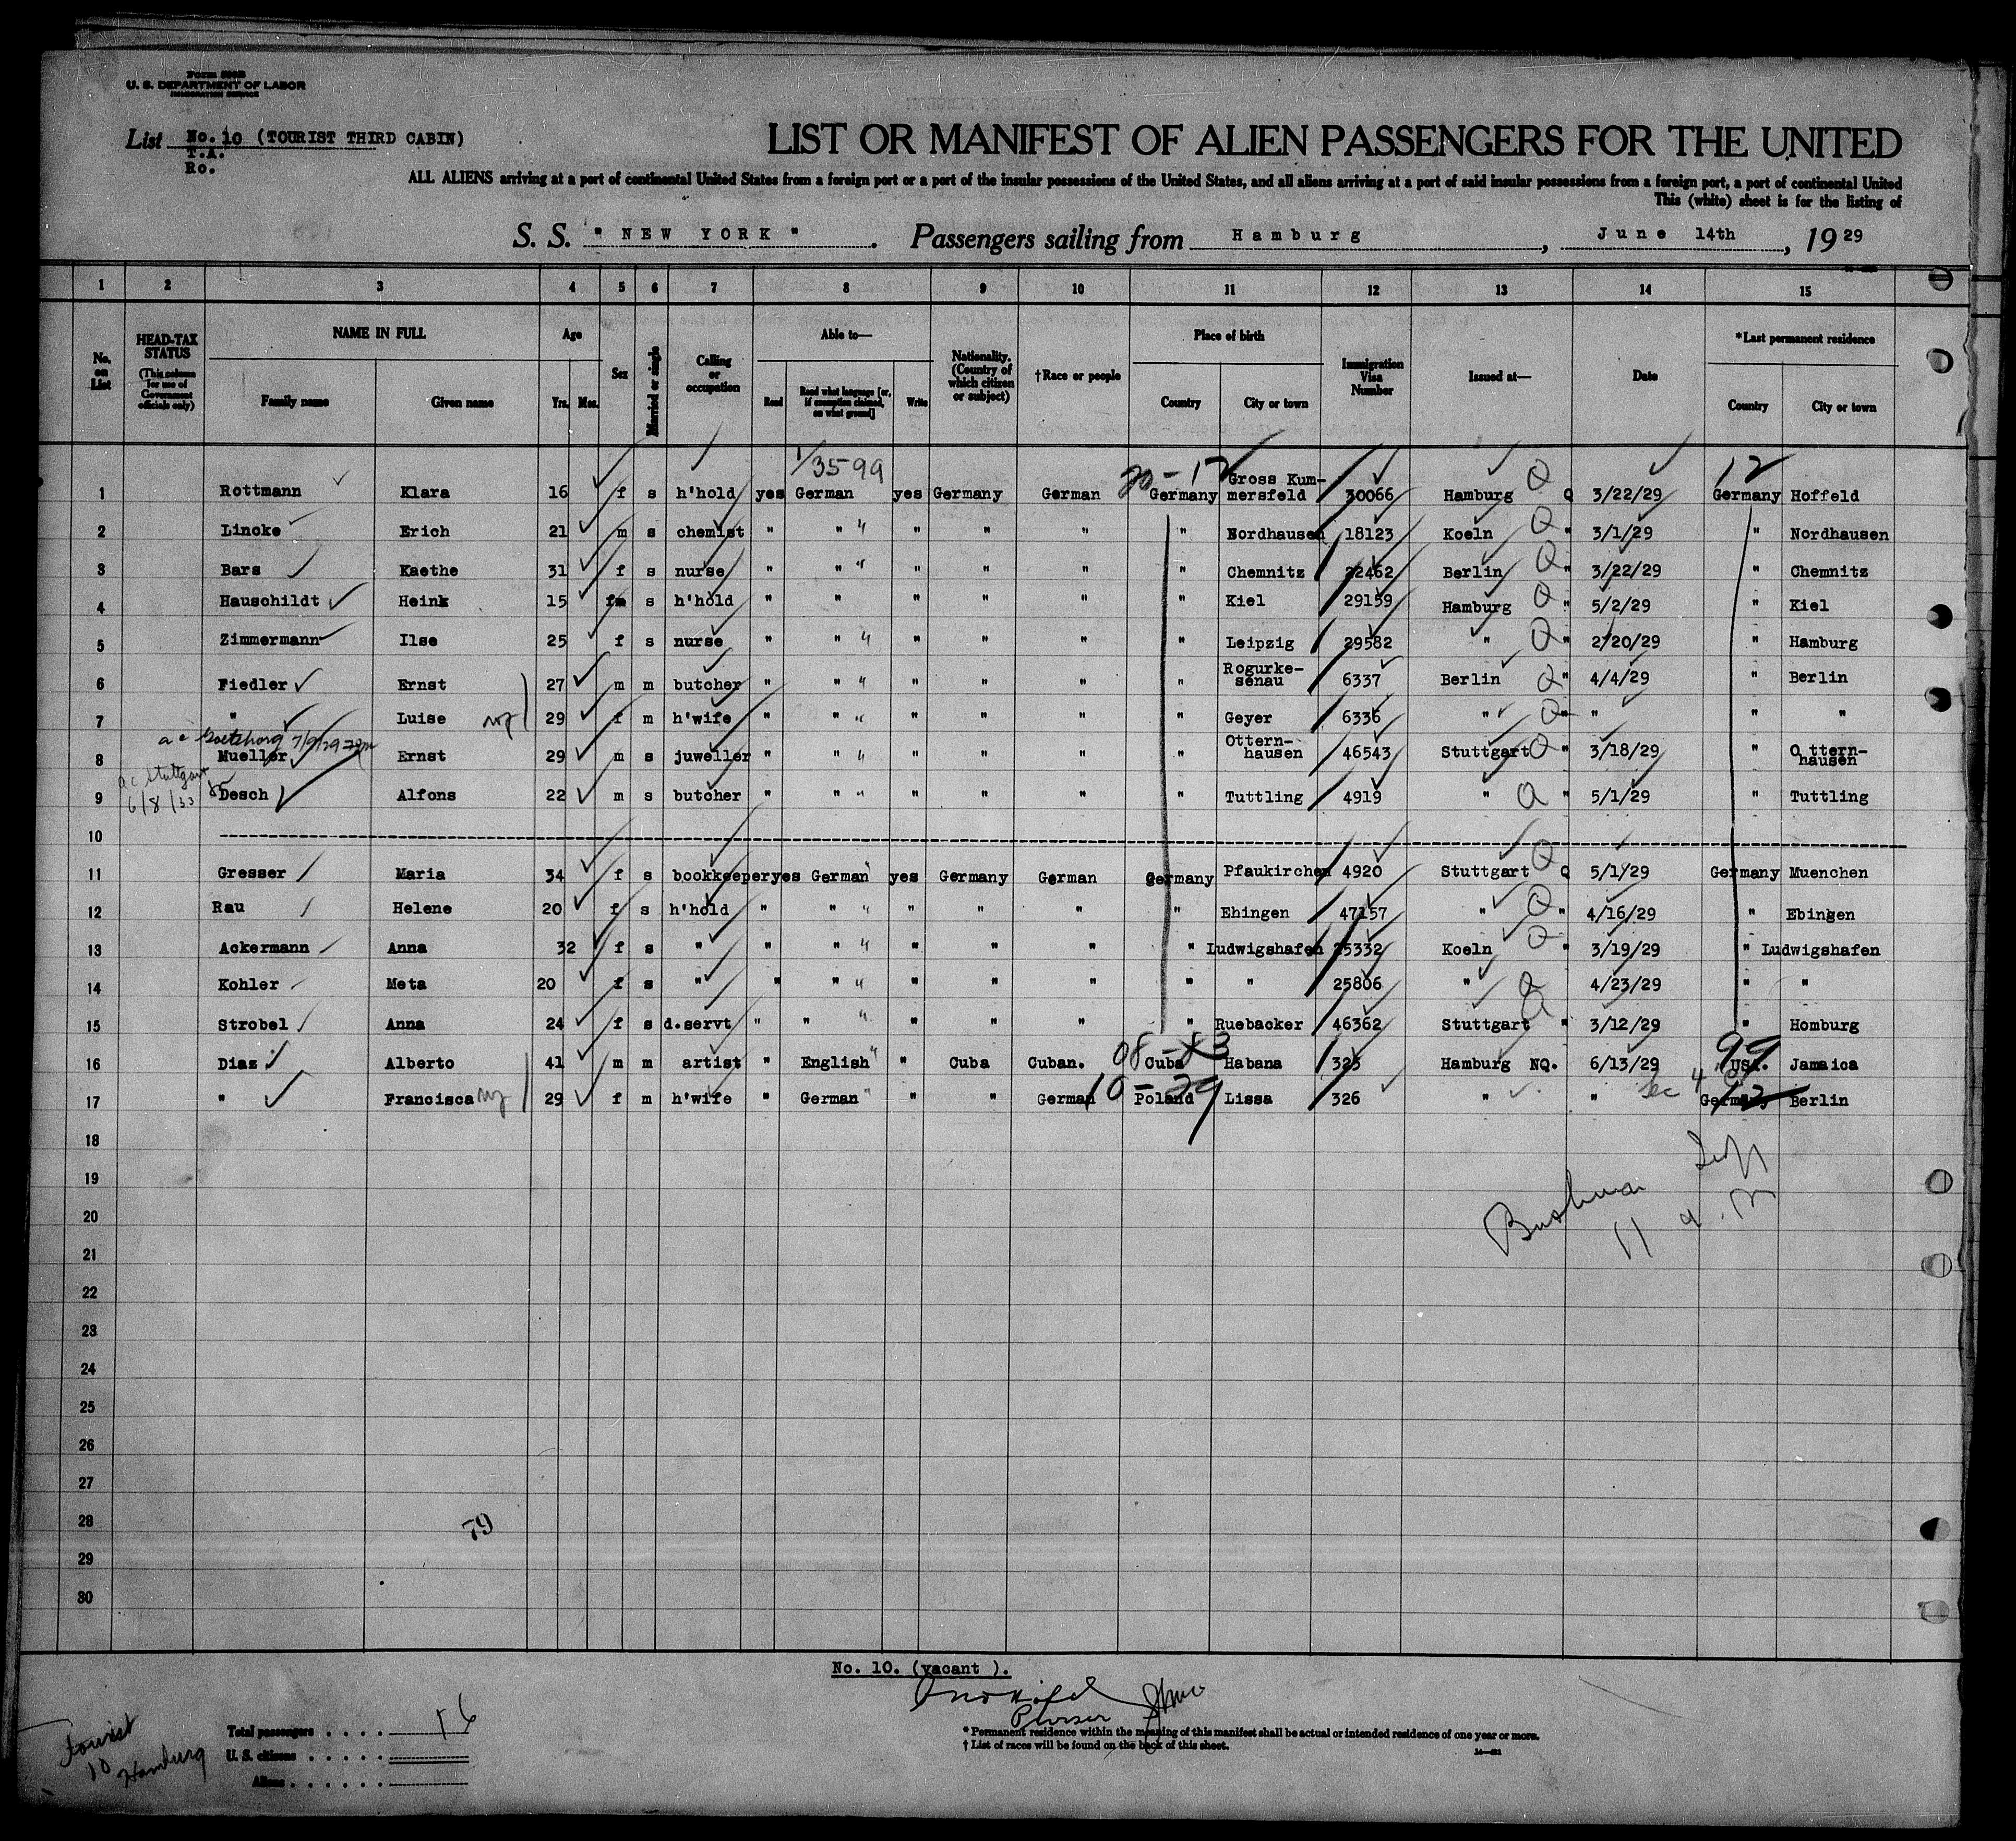 Form 500B
U. S. DEPARTMENT OF LABOR
IMMIGRATION SERVICE
List No. 10 (TOURIST THIRD CABIN)
T.A.
Ro.
LIST OR MANIFEST OF ALIEN PASSENGERS FOR THE UNITED
ALL ALIENS arriving at a port of continental United States from a foreign port or a port of the insular possessions of the United States, and all aliens arriving at a port of said insular possessions from a foreign port, a port of continental United
This (white) sheet is for the listing of
S. S. " NEW YORK " . Passengers sailing from Hamburg , June 14th , 1929
1 2 3 4 5 6 7 8 9 10 11 12 13 14 15
No. on List
HEAD-TAX STATUS (This column for use of Government officials only)
NAME IN FULL
Family name Given name
Age
Yrs. Mos.
Sex
Married or single
Calling or occupation
Able to—
Read Read what language [or, if exemption claimed, on what ground] Write
Nationality. (Country of which citizen or subject)
†Race or people
Place of birth
Country City or town
Immigration Visa Number
Issued at—
Date
*Last permanent residence
Country City or town
1/3599 20-17 12
1 Rottmann Klara 16 f s h'hold yes German yes Germany German Germany Gross Kum-mersfeld 30066 Hamburg Q Q 3/22/29 Germany Hoffeld
2 Lincke Erich 21 m s chemist " " " " " " " Nordhausen 18123 Koeln Q " 3/1/29 " Nordhausen
3 Bars Kaethe 31 f s nurse " " " " " " " Chemnitz 22462 Berlin Q " 3/22/29 " Chemnitz
4 Hauschildt Heink 15 s h'hold " " " " " " Kiel 29159 Hamburg Q " 5/2/29 " Kiel
5 Zimmermann Ilse 25 f s nurse " " " " " " " Leipzig 29582 " Q " 2/20/29 " Hamburg
6 Fiedler Ernst 27 m m butcher " " " " " " " Rogurke-senau 6337 Berlin Q " 4/4/29 " Berlin
7 " Luise 29 f m h'wife " " " " " " " Geyer 6336 " Q " " " "
8 Mueller Ernst 29 m s juweller " " " " " " " Ottern-hausen 46543 Stuttgart Q " 3/18/29 " Ottern-hausen
a c Stuttgart
6/8/33
9 Desch Alfons 22 m s butcher " " " " " " " Tuttling 4919 " Q " 5/1/29 " Tuttling
10
11 Gresser Maria 34 f s bookkeeper yes German yes Germany German Germany Pfaukirchen 4920 Stuttgart Q Q 5/1/29 Germany Muenchen
12 Rau Helene 20 f s h'hold " " " " " " " Ehingen 47157 " Q " 4/16/29 " Ebingen
13 Ackermann Anna 32 f s " " " " " " " " Ludwigshafen 25332 Koeln Q " 3/19/29 " Ludwigshafen
14 Kohler Meta 20 f s " " " " " " " " " 25806 " Q 4/23/29 " "
15 Strobel Anna 24 f s d.servt " " " " " " " Ruebacker 46362 Stuttgart Q " 3/12/29 " Homburg
16 Diaz Alberto 41 m m artist " English " " Cuba Cuban. Cuba Habana 325 Hamburg NQ. 6/13/29 USA. Jamaica
17 " Francisca 29 f m h'wife " German " " " German Poland Lissa 326 " " Germany Berlin
18
19
20
21
22
23
24
25
26
27
28
29
30
79
No. 10. (vacant ).
Purser
Total passengers . . . . 16
U. S. citizens . . . . .
Aliens . . . . . .
Tourist
10 Hamburg
* Permanent residence within the meaning of this manifest shall be actual or intended residence of one year or more.
† List of races will be found on the back of this sheet.